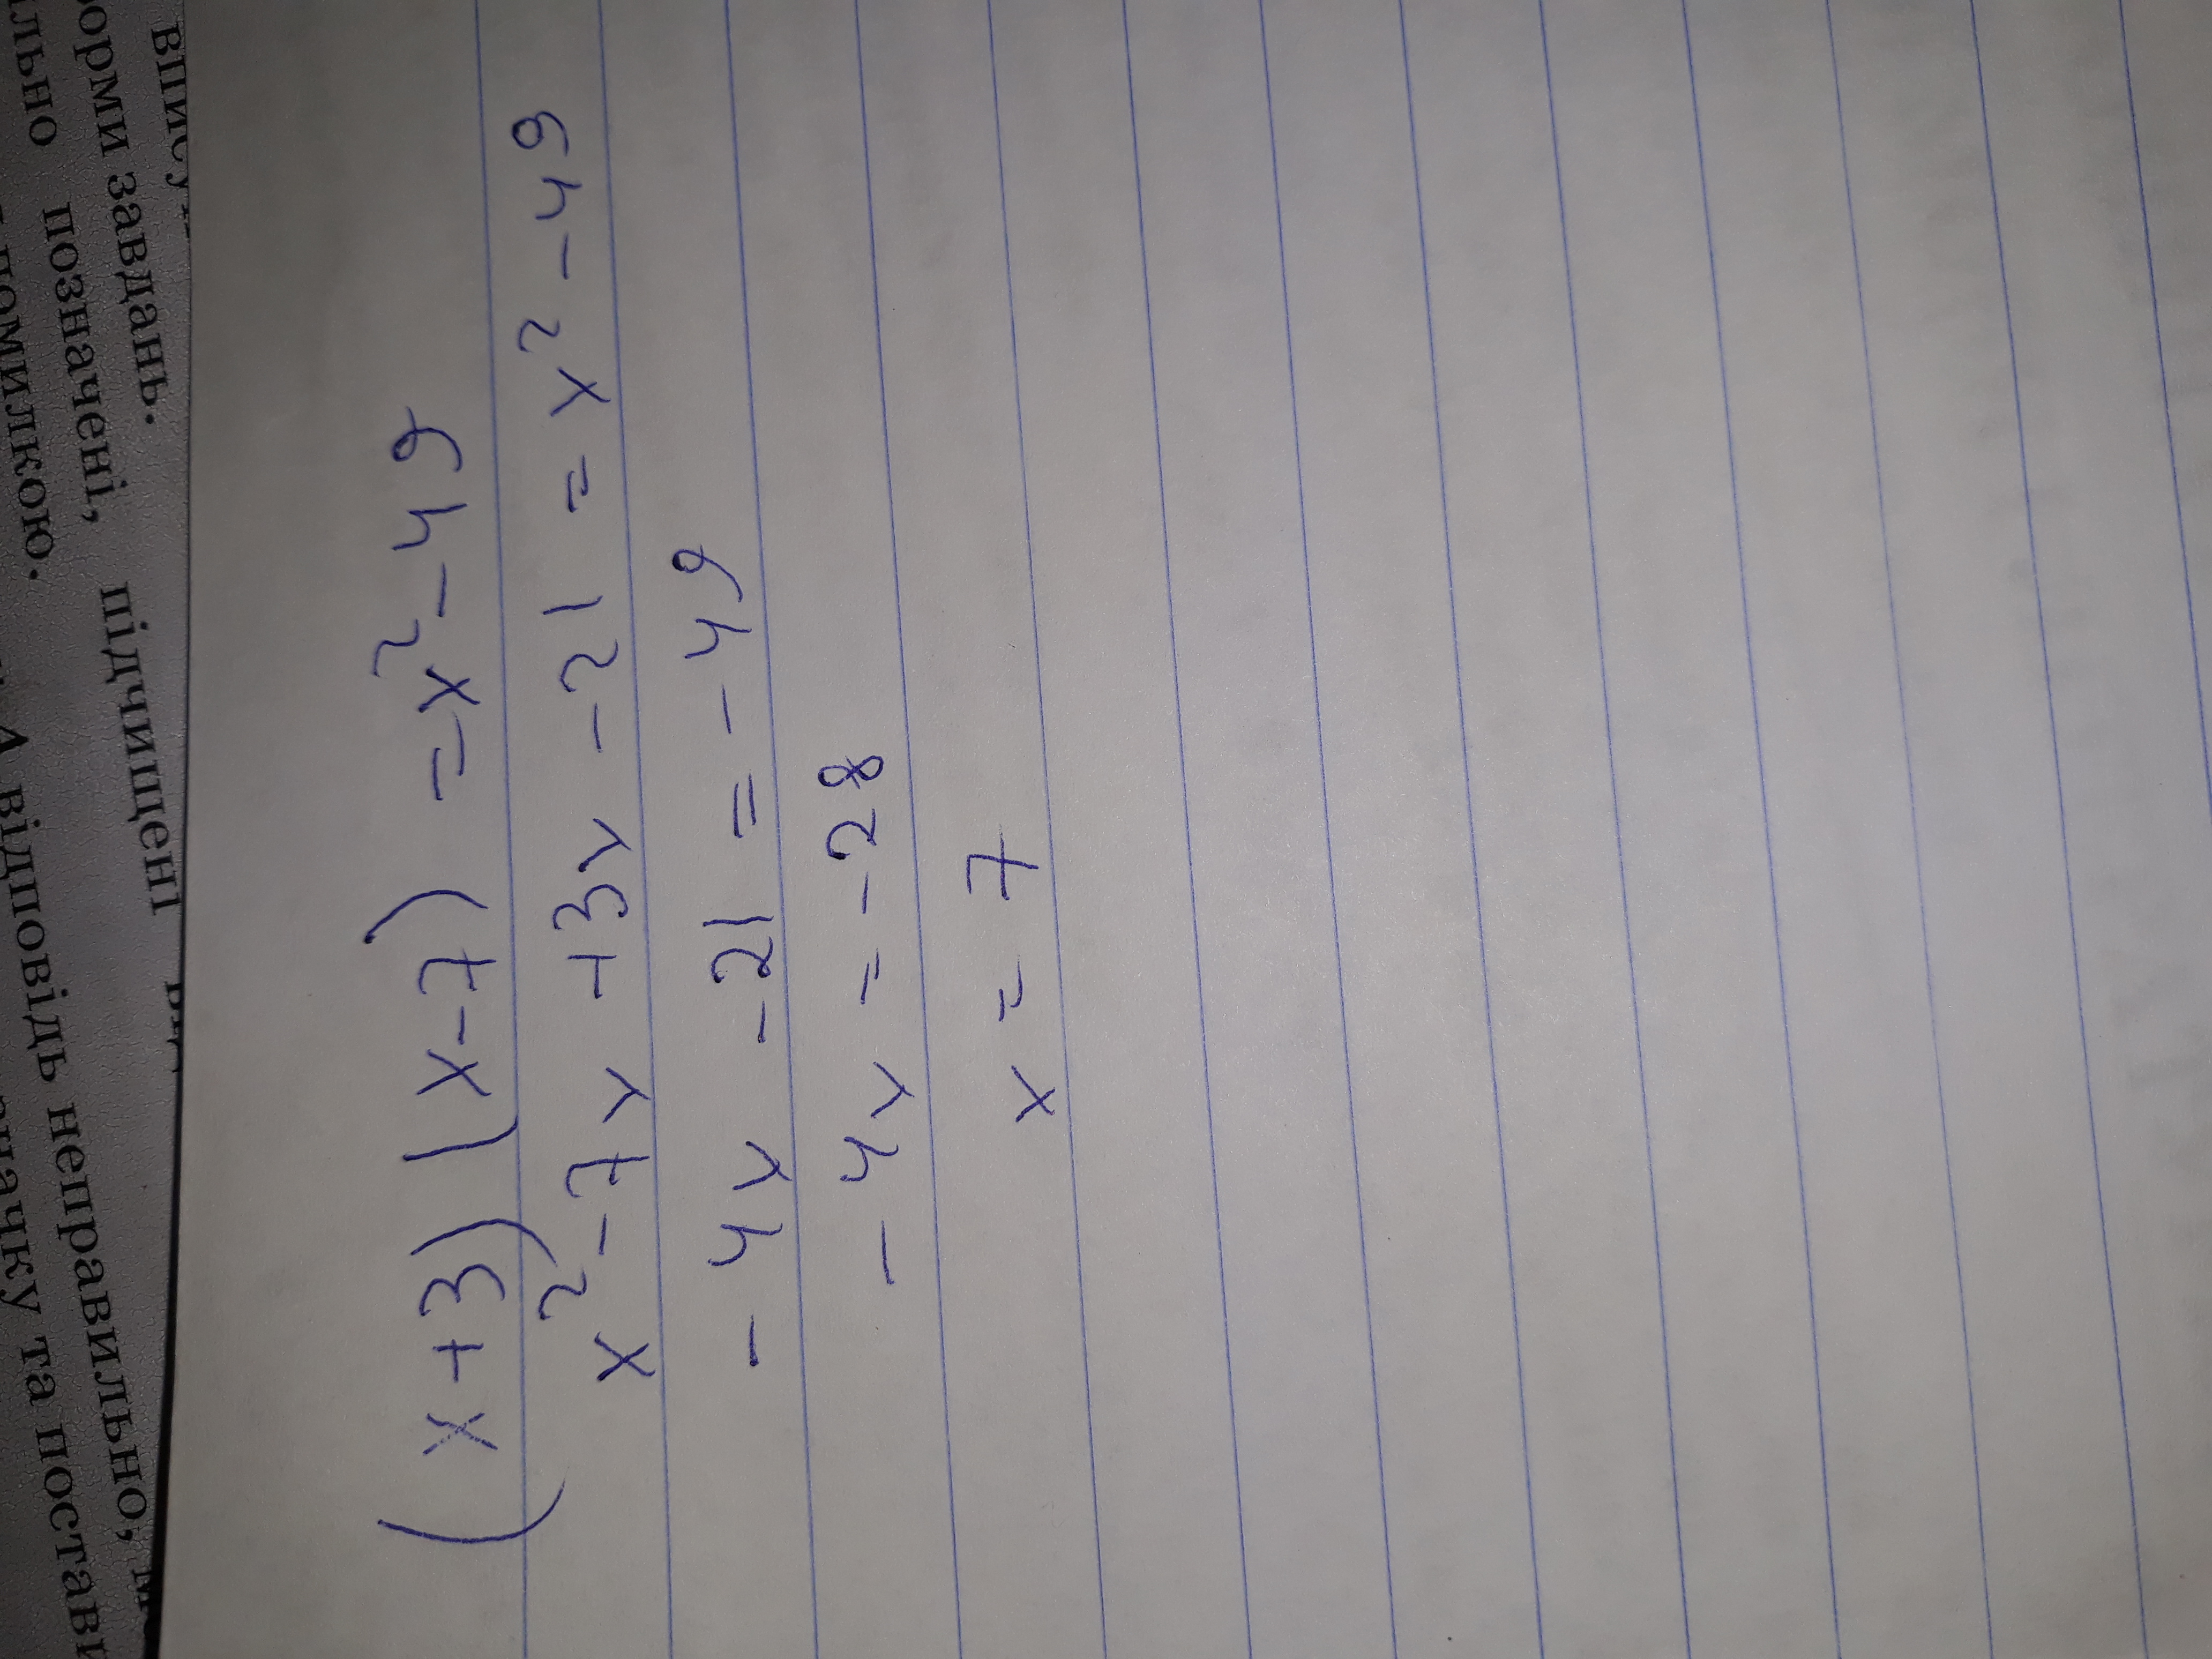 впису
орми завдань.
льно позначені, підчищені
помилкою.
А відповідь неправильно,
значку та постави
(x+3)(x-7) = x² - 49
x² - 7x + 3x - 21 = x² - 49
- 4x - 21 = - 49
- 4x = - 28
x = 7